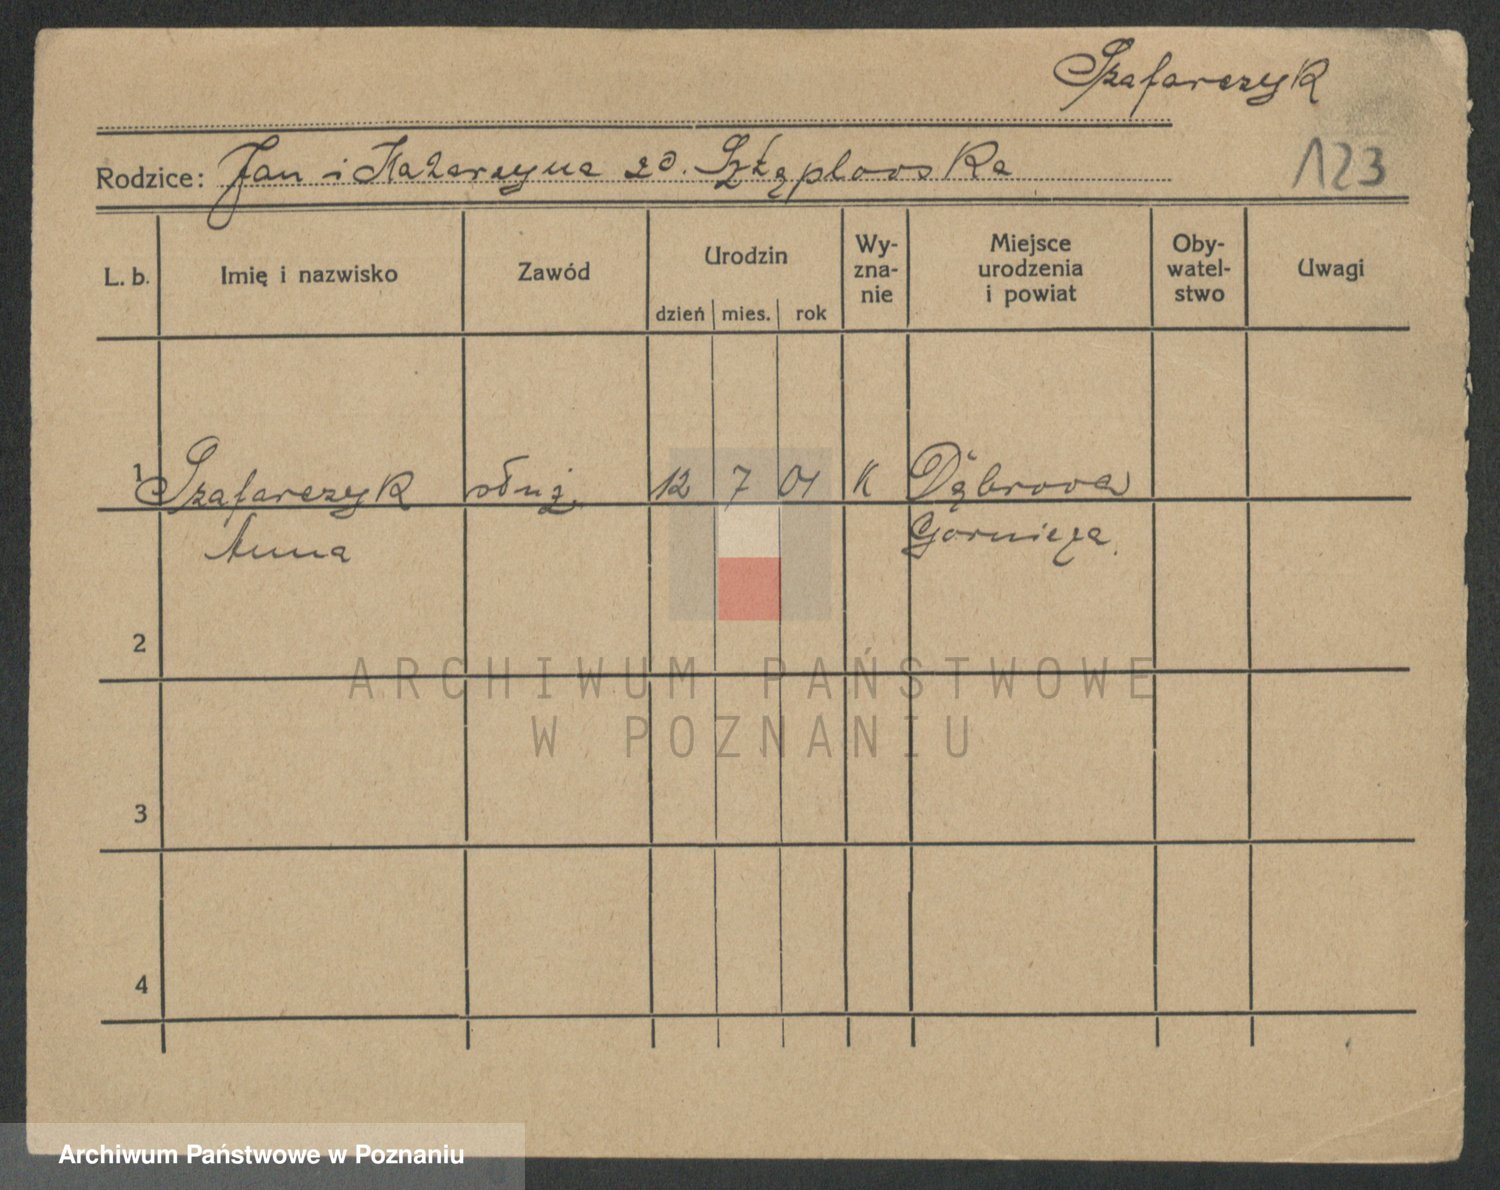 Szafarczyk
Rodzice: Jan i Katarzyna zd.
123
L. b. Imię i nazwisko Zawód Urodzin Wy-
zna-
nie Miejsce
urodzenia
i powiat Oby-
watel-
stwo Uwagi
dzień mies. rok
1 Szafarczyk służ. 12 7 01 K Dąbrowa
Anna Gornicza
2
ARCHIWUM PAŃSTWOWE
W POZNANIU
3
4
Archiwum Państwowe w Poznaniu